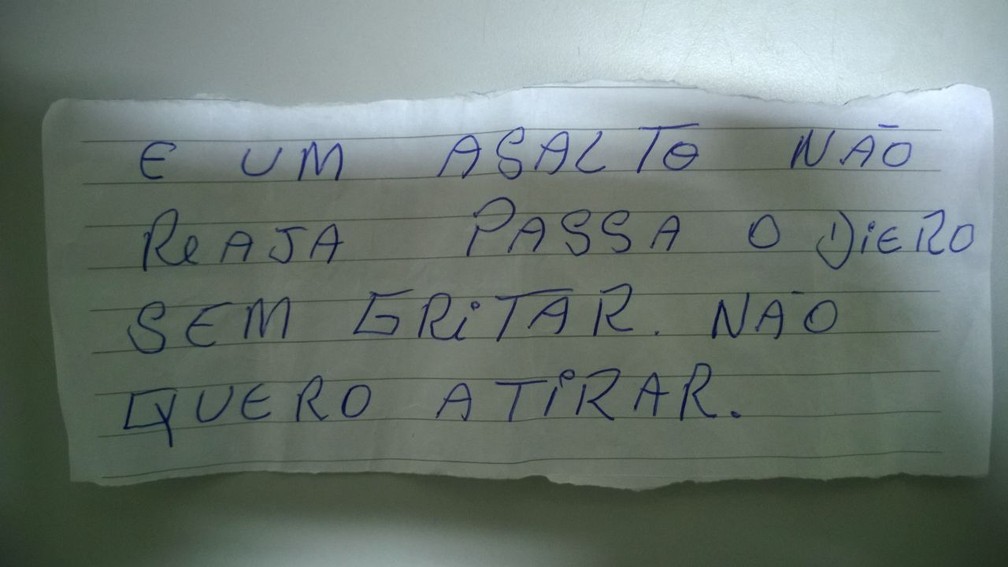 E UM ASALTO NÃO
ReAJA PASSA O DiERO
SEM GRiTAR. NÃO
QUERO ATiRAR.